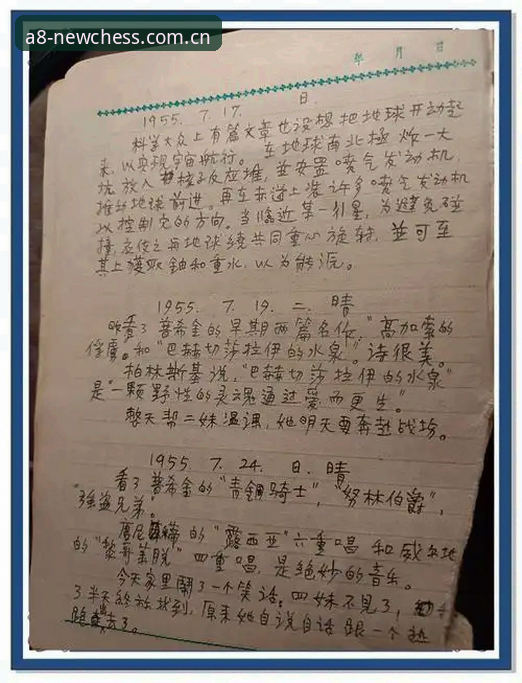 a8-newchess.com.cn
年 月 日
1955. 7. 17. 日
科学大众上有篇文章也设想把地球开动起
来，以实现宇宙航行。在地球南北極炸一大
坑放入核子反应堆，並安置喷气发动机，
推动地球前进。再在赤道上装许多喷气发动机
以控制它的方向。当临近某一引星，为避免碰
撞，应使之与地球绕共同重心旋转，並可至
其上獲取鈾和重水，以为能源。
1955. 7. 19. 二. 晴
昨看了普希金的早期两篇名作，"高加索的
俘虏。和"巴赫切莎拉伊的水泉。诗很美。
柏林斯基说，"巴赫切莎拉伊的水泉"
是"一颗野性的灵魂通过爱而更生。"
整天帮二妹温课，她明天要奔赴战场。
1955. 7. 24. 日. 晴
看了普希金的"青铜骑士"，"努林伯爵"，
"强盗兄弟"。
的"露西亚"六重唱和威尔地
的"黎哥莱脱"四重唱，是绝妙的音乐。
今天家里鬧了一个笑话。四妹不见了，
了半天終於找到，原来她自说自话跟一个
跑去了。